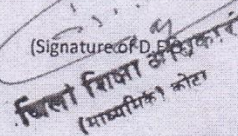 (Signature of D.E.O.
जिला शिक्षा अधिकारी
(माध्यमिक) कोटा